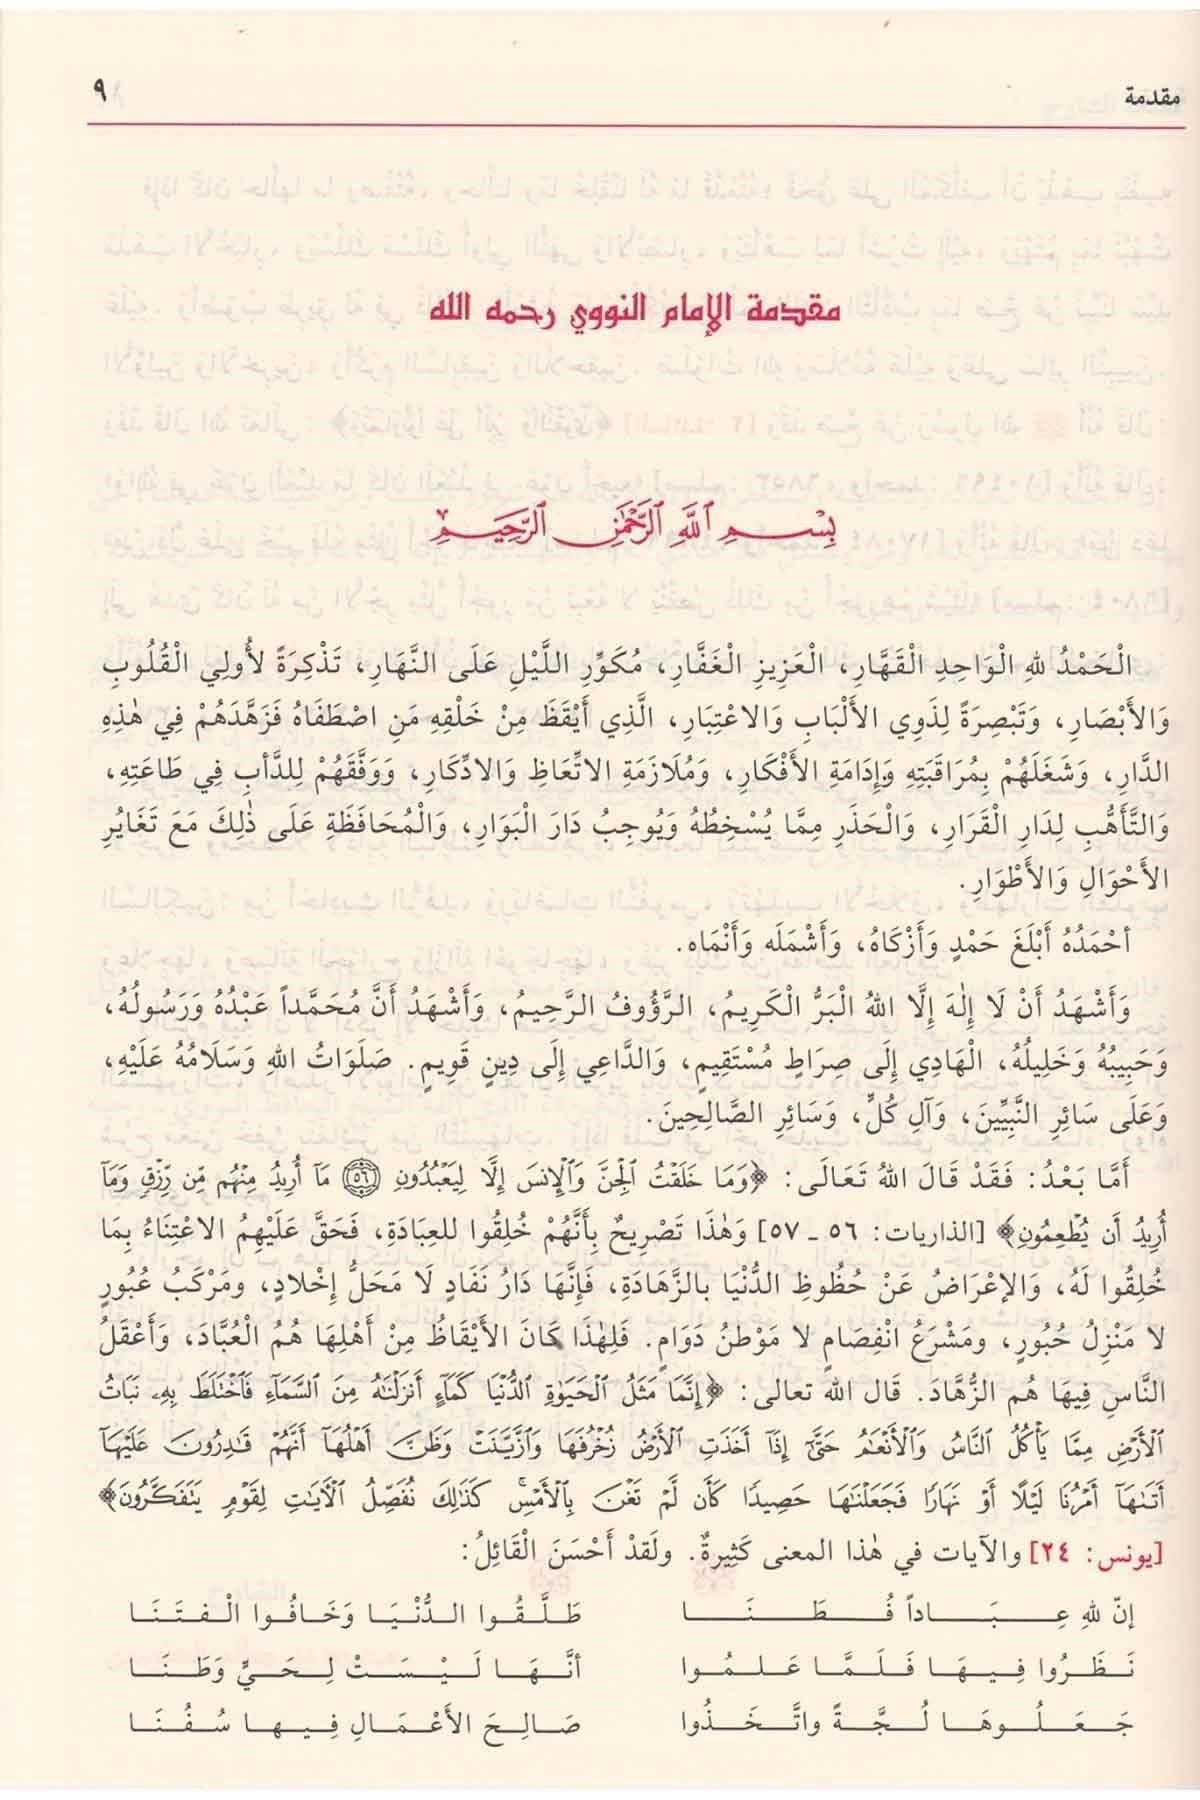 مقدمة ٩
مقدمة الإمام النووي رحمه الله
بِسْمِ ٱللَّهِ ٱلرَّحْمَٰنِ ٱلرَّحِيمِ
الْحَمْدُ للهِ الْوَاحِدِ الْقَهَّارِ، الْعَزِيزِ الْغَفَّارِ، مُكَوِّرِ اللَّيْلِ عَلَى النَّهَارِ، تَذْكِرَةً لأُولِي الْقُلُوبِ
وَالأَبْصَارِ، وَتَبْصِرَةً لِذَوِي الأَلْبَابِ وَالاعْتِبَارِ، الَّذِي أَيْقَظَ مِنْ خَلْقِهِ مَنِ اصْطَفَاهُ فَزَهَّدَهُمْ فِي هٰذِهِ
الدَّارِ، وَشَغَلَهُمْ بِمُرَاقَبَتِهِ وَإِدَامَةِ الأَفْكَارِ، وَمُلَازَمَةِ الاتِّعَاظِ وَالادِّكَارِ، وَوَفَّقَهُمْ لِلدَّأبِ فِي طَاعَتِهِ،
وَالتَّأَهُّبِ لِدَارِ الْقَرَارِ، وَالْحَذَرِ مِمَّا يُسْخِطُهُ وَيُوجِبُ دَارَ الْبَوَارِ، وَالْمُحَافَظَةِ عَلَى ذٰلِكَ مَعَ تَغَايُرِ
الأَحْوَالِ وَالأَطْوَارِ.
أحْمَدُهُ أَبْلَغَ حَمْدٍ وَأَزْكَاهُ، وَأَشْمَلَه وَأَنْمَاه.
وَأَشْهَدُ أَنْ لَا إِلٰهَ إِلَّا اللهُ الْبَرُّ الْكَرِيمُ، الرَّؤُوفُ الرَّحِيمُ، وَأَشْهَدُ أَنَّ مُحَمَّداً عَبْدُهُ وَرَسُولُهُ،
وَحَبِيبُهُ وَخَلِيلُهُ، الْهَادِي إِلَى صِرَاطٍ مُسْتَقِيمٍ، وَالدَّاعِي إِلَى دِينٍ قَوِيمٍ. صَلَوَاتُ اللهِ وَسَلَامُهُ عَلَيْهِ،
وَعَلَى سَائِرِ النَّبِيِّينَ، وَآلِ كُلٍّ، وَسَائِرِ الصَّالِحِينَ.
أَمَّا بَعْدُ: فَقَدْ قَالَ اللهُ تَعَالَى: ﴿وَمَا خَلَقْتُ ٱلْجِنَّ وَٱلْإِنسَ إِلَّا لِيَعْبُدُونِ ٥٦ مَآ أُرِيدُ مِنْهُم مِّن رِّزْقٍ وَمَآ
أُرِيدُ أَن يُطْعِمُونِ﴾ [الذاريات: ٥٦ ـ ٥٧] وَهٰذَا تَصْرِيحٌ بِأَنَّهُمْ خُلِقُوا للعِبَادَةِ، فَحَقَّ عَلَيْهِمُ الاعْتِنَاءُ بِمَا
خُلِقُوا لَهُ، وَالإعْرَاضُ عَنْ حُظُوظِ الدُّنْيَا بالزَّهَادَةِ، فَإِنَّهَا دَارُ نَفَادٍ لَا مَحَلُّ إِخْلادٍ، ومَرْكَبُ عُبُورٍ
لا مَنْزِلُ حُبُورٍ، ومَشْرَعُ انْفِصَامٍ لا مَوْطنُ دَوَامٍ. فَلِهٰذَا كَانَ الأَيْقَاظُ مِنْ أَهْلِهَا هُمُ الْعُبَّادَ، وَأَعْقَلُ
النَّاسِ فِيهَا هُم الزُّهَّادَ. قَال الله تعالى: ﴿إِنَّمَا مَثَلُ ٱلْحَيَوٰةِ ٱلدُّنْيَا كَمَآءٍ أَنزَلْنَٰهُ مِنَ ٱلسَّمَآءِ فَٱخْتَلَطَ بِهِۦ نَبَاتُ
ٱلْأَرْضِ مِمَّا يَأْكُلُ ٱلنَّاسُ وَٱلْأَنْعَٰمُ حَتَّىٰٓ إِذَآ أَخَذَتِ ٱلْأَرْضُ زُخْرُفَهَا وَٱزَّيَّنَتْ وَظَنَّ أَهْلُهَآ أَنَّهُمْ قَٰدِرُونَ عَلَيْهَآ
أَتَىٰهَآ أَمْرُنَا لَيْلًا أَوْ نَهَارًا فَجَعَلْنَٰهَا حَصِيدًا كَأَن لَّمْ تَغْنَ بِٱلْأَمْسِ كَذَٰلِكَ نُفَصِّلُ ٱلْآيَٰتِ لِقَوْمٍ يَتَفَكَّرُونَ﴾
[يونس: ٢٤] والآيات في هٰذا المعنى كَثِيرةٌ. ولَقدْ أَحْسَنَ الْقَائِلُ:
إنّ للهِ عِـبَـاداً فُـطَـنَـا طَلَّقُوا الدُّنْيَا وَخَافُوا الْفتَنَا
نَـظَرُوا فِـيهَـا فَـلَـمَّـا عَـلـمُـوا أنَّـهَـا لَـيْـسَـتْ لِـحَـيٍّ وَطَـنَـا
جَـعَـلُـوهَـا لُـجَّـةً واتَّـخَـذُوا صَـالِـحَ الأَعْـمَـالِ فِـيـهـا سُـفُـنَـا